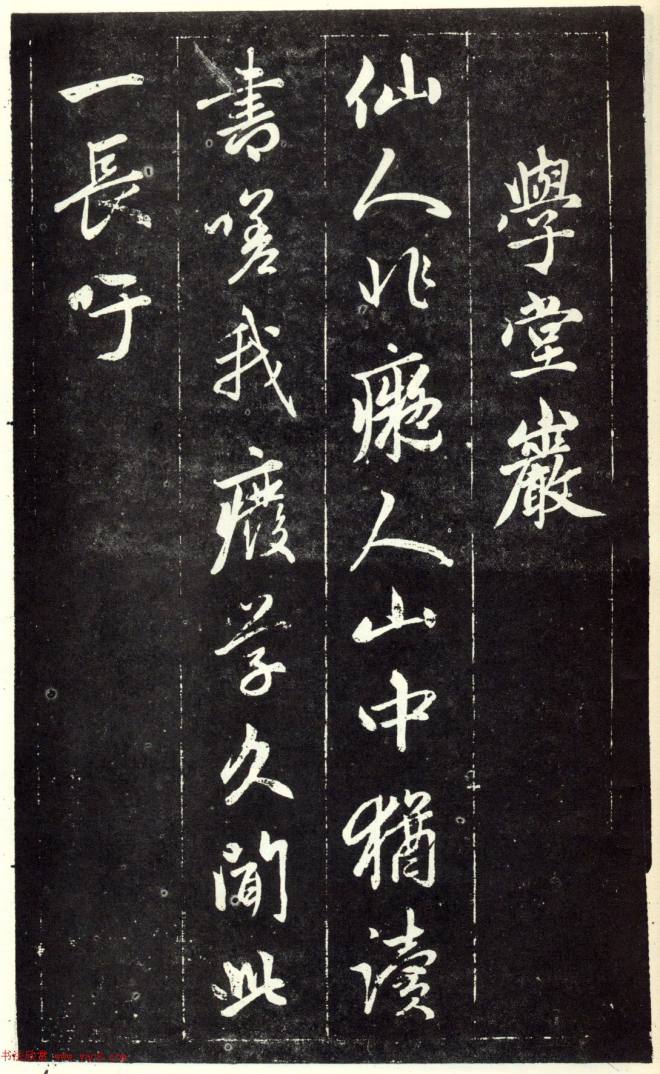 學堂巖
仙人非癡人山中猶讀
書嗟我廢学久聞此
一長吁